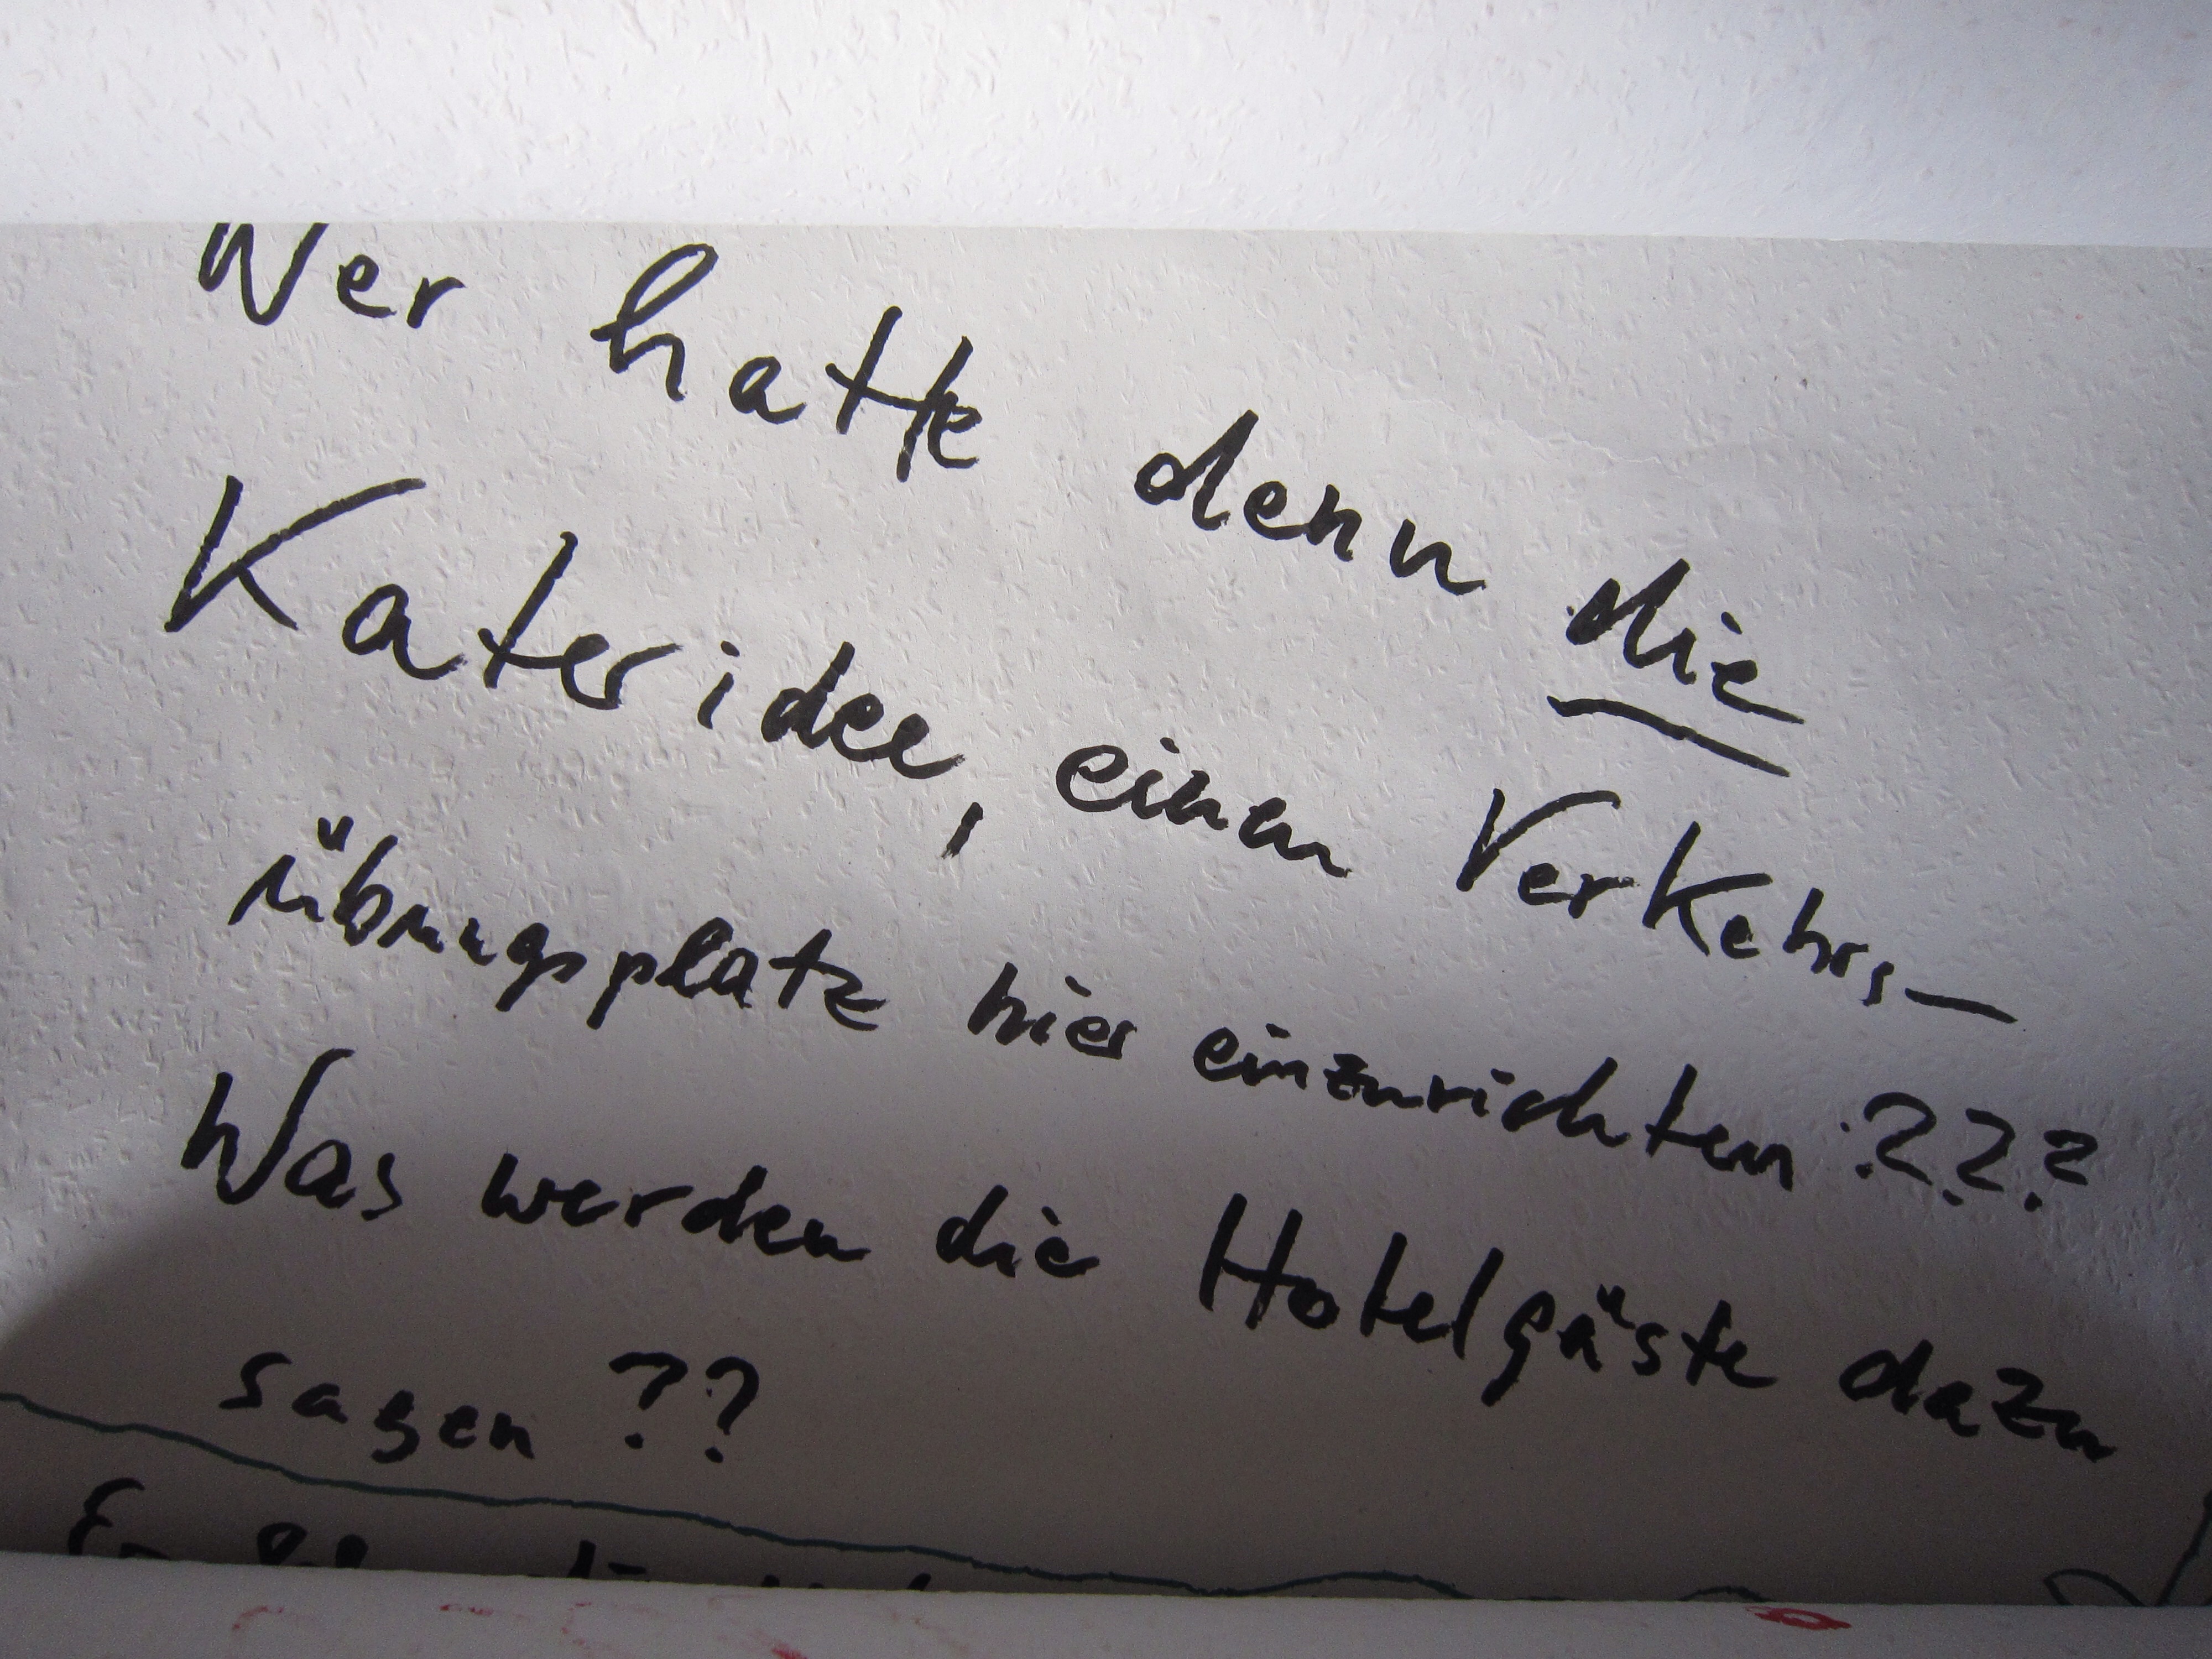 Wer hatte denn die
Kateridee, einen Verkehrs-
übungsplatz hier einzurichten ???
Was werden die Hotelgäste dazu
sagen ??